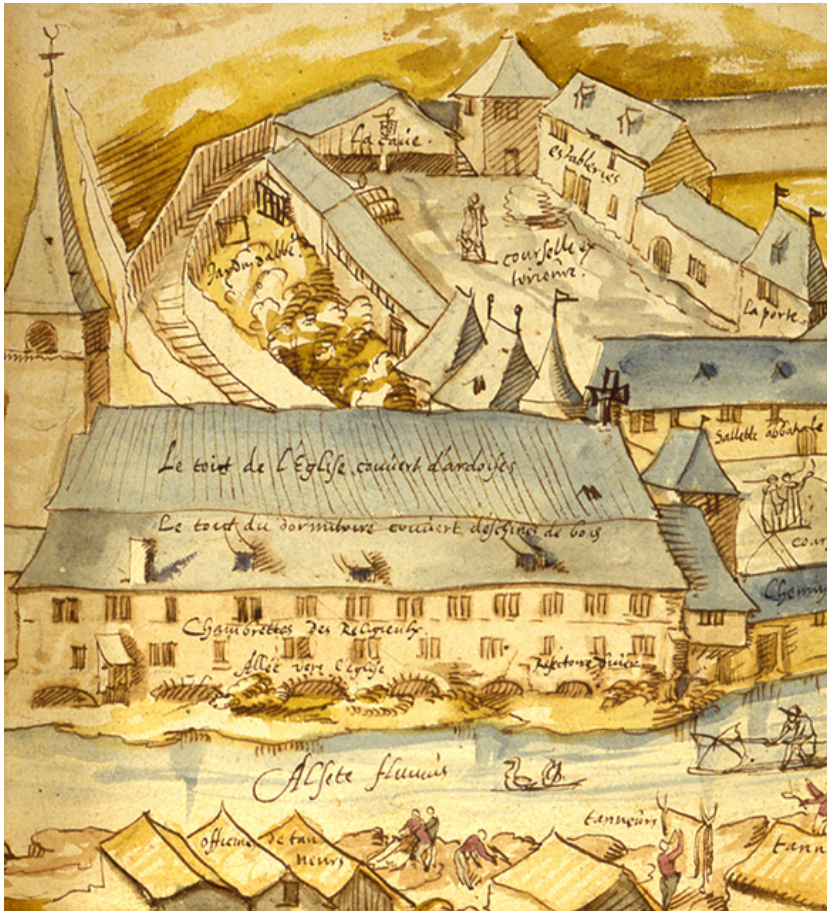 La caue.
estableries
Jardin d'abbé.
courselle ex
terieure.
La porte.
Sallette abbatiale
Le toict de l'Eglise couvert d'ardoises
Le toict du dormitoire couvert d'eschines de bois
cour
Chemin
Chambrettes des Religieulx.
Allée vers l'église
Refectoire d'hiver
Alsete fluuius
tanneurs
officines de tan
neurs
tann